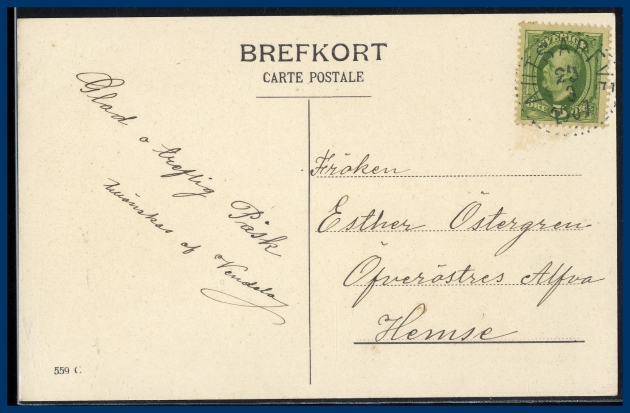 BREFKORT
CARTE POSTALE
SVERIGE
ÖRE 5 ÖRE
Glad o treflig Påsk
tillönskas af
Vendela
Fröken
Esther Östergren
Öfveröstres Alfva
Hemse
559 C.